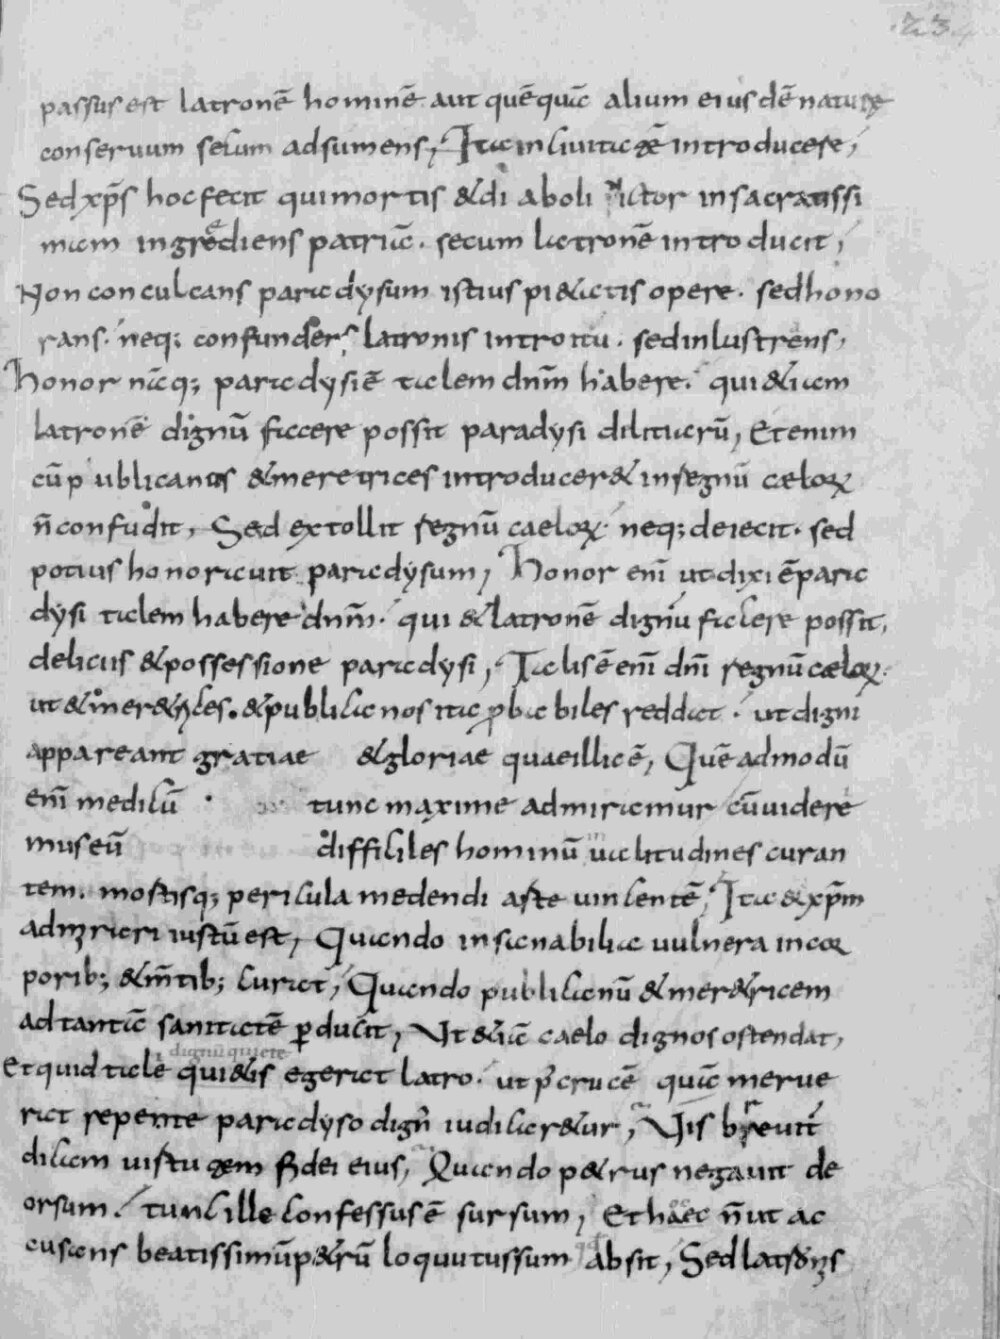 234
passus est latronē hominē aut quēquā alium eiusdē naturę
conseruum secum adsumens; Ita in ciuitatē introducere;
Sed xp̄s hoc fecit qui mortis & diaboli uictor in sacratissi
mam ingrediens patriā. secum latronē introducit;
Non conculcans paradysum istius pi&atis opere. sed hono
rans. neq; confundens latronis introitu. sed inlustrans,
Honor nāq; paradysi ē talem dnm̄ habere. qui & iam
latronē dignū facere possit paradysi dilitiarū, Etenim
cū publicanos & meretrices introducer& in regnū cęloꝝ
n̄ confudit, Sed extollit regnū caeloꝝ. neq; deiecit. sed
potius honorauit paradysum, Honor eni ut dixi ē para
dysi talem habere dnm̄. qui & latronē dignū facere possit,
deliciis & possessione paradysi, Talis ē eni dni regnū cęloꝝ.
ut & mer&rices. & publicanos ita ꝓbabiles reddat. ut digni
appareant gratiae & gloriae quae illic ē, Quē admodū
eni medicū tunc maxime admiramur cū uidere
mus eū difficiles hominū ualitudines curan
tem. mostisq; pericula medendi arte uincentē, Ita & xpm̄
admirari iustū est, Quando insanabilia uulnera in cor
porib; & m̄tib; curat, Quando publicanū & mer&ricem
ad tantā sanitatē ꝑducit, Ut & iā caelo dignos ostendat,
dignū quiete
Et quid talē qui & is egerat latro. ut p̄ crucē quā merue
rat repente paradyso dign iudicar&ur, Vis breuit
dicam uirtutem fidei eius, Quando p&rus negauit de
orsum. tunc ille confessus ē sursum, Et haec n̄ ut ac
cusans beatissimū p&rū loquutus sum absit, Sed latronis